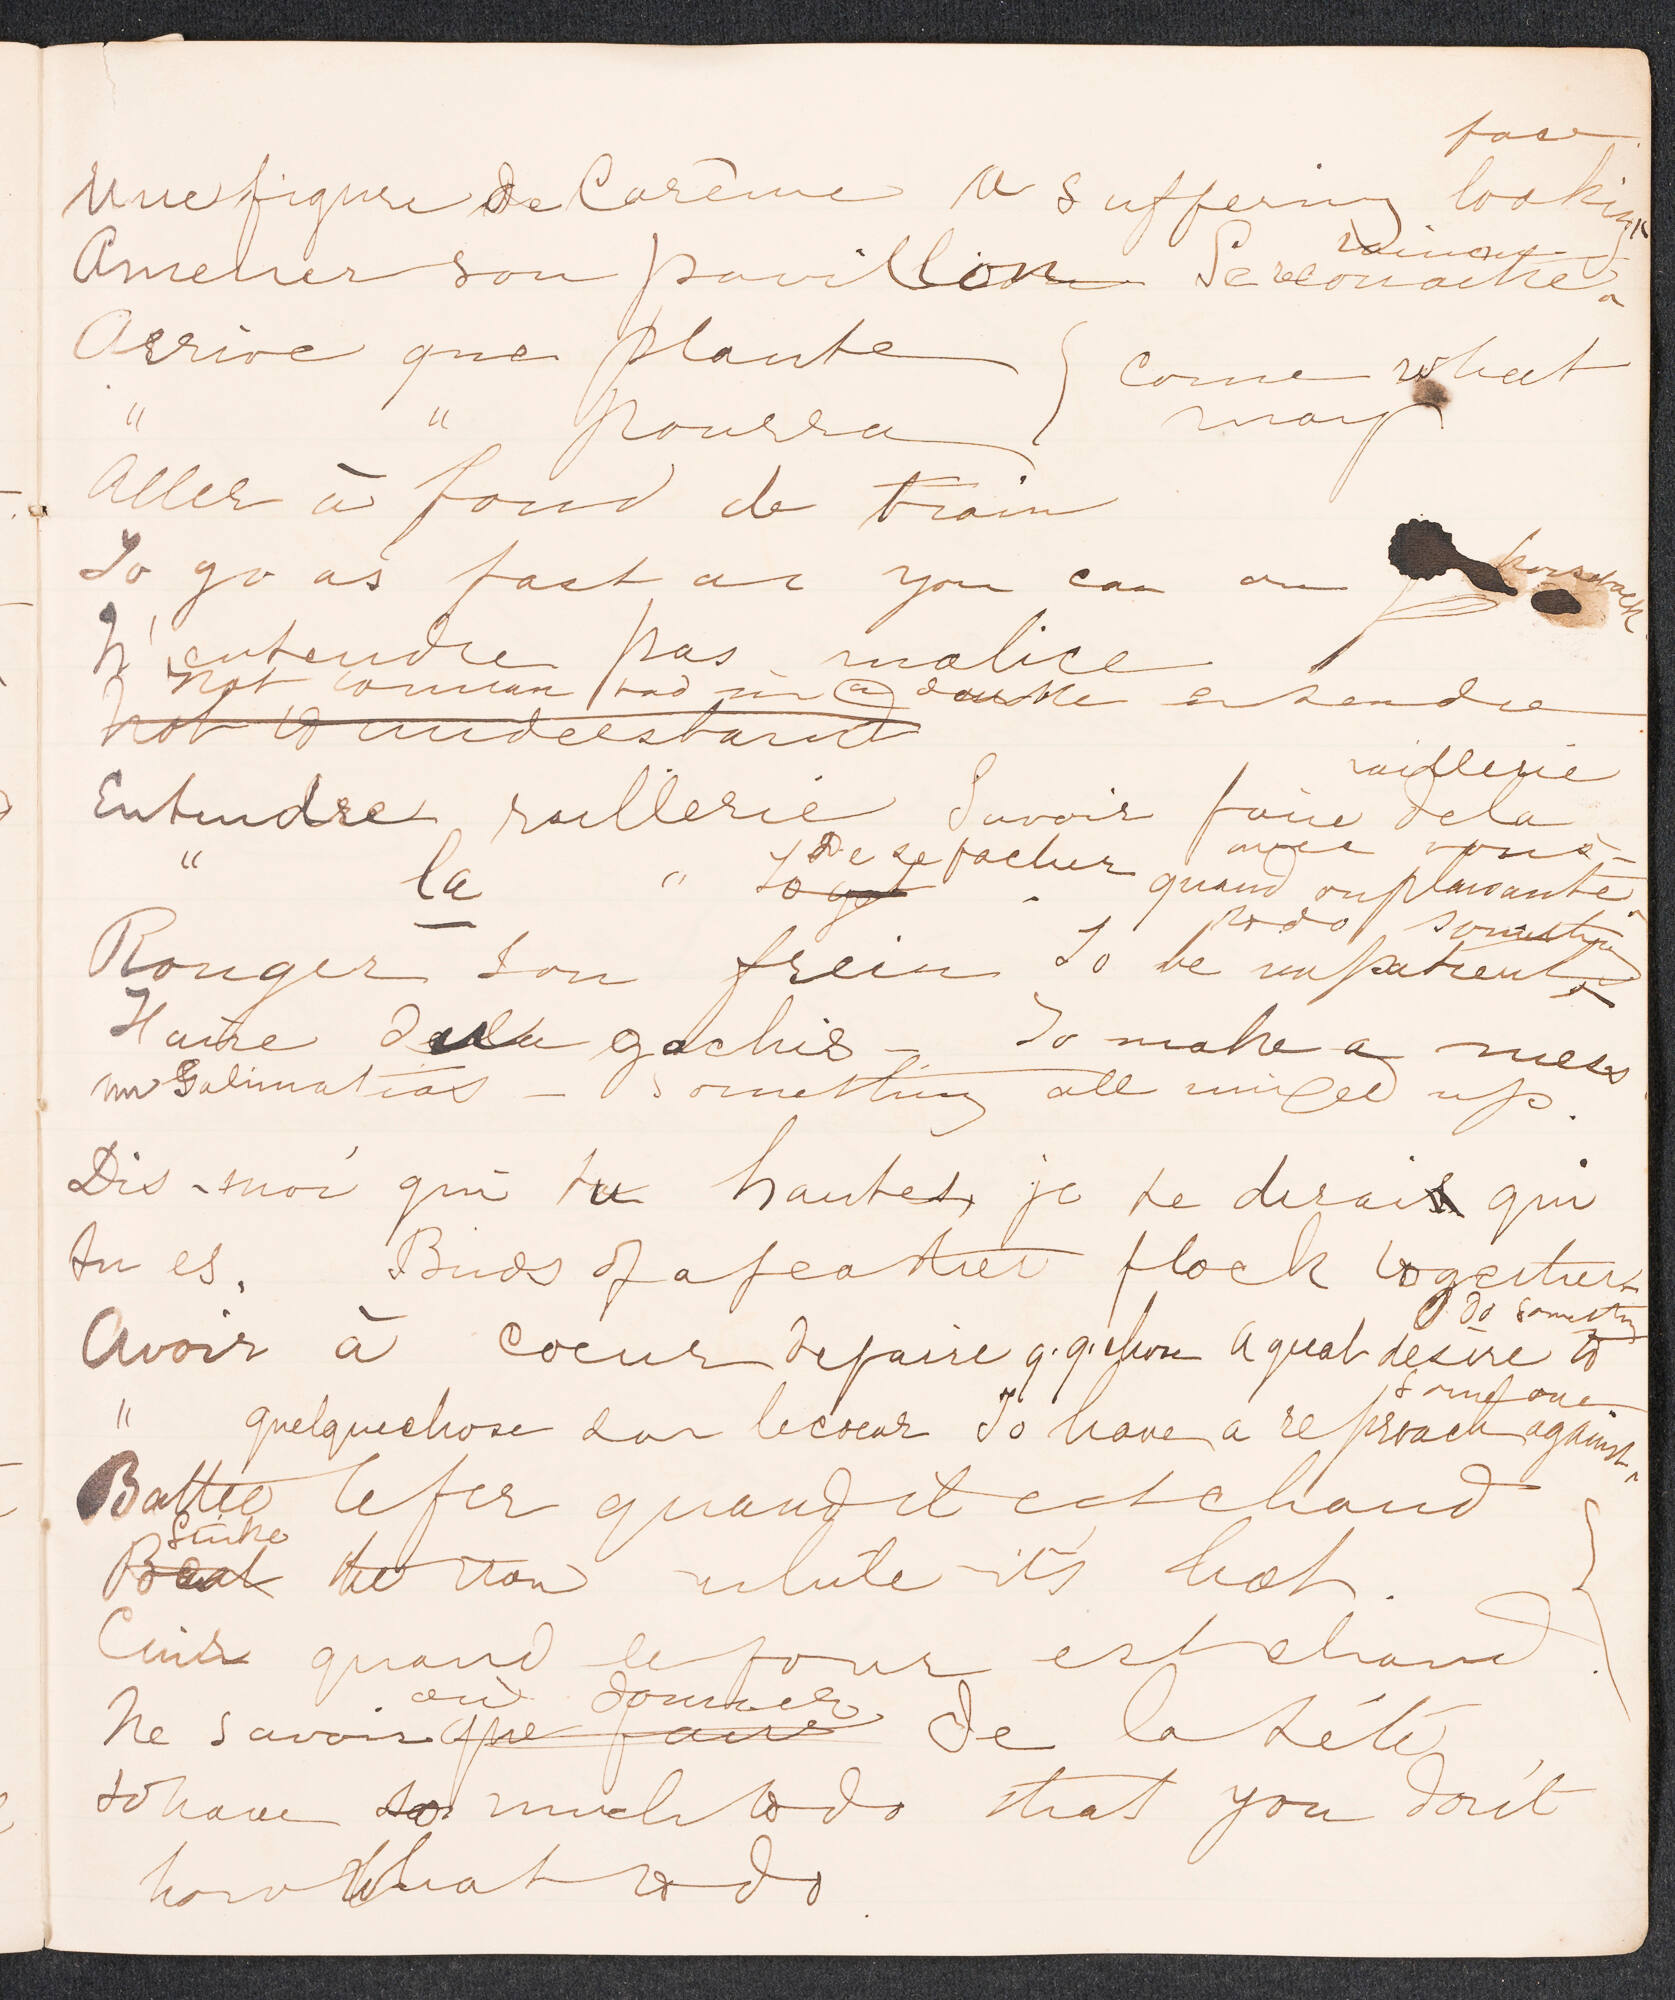 face
Une figure de Carême A suffering looking
vaincu
Amener son pavillon Se reconaitre
Arrive que plante } come what
" " pourra } may
Aller à fond de train
To go as fast as you can on horseback
N'entendre pas malice
not to mean bad in a double entendre
Not to understand
raillerie
Entendre raillerie Savoir faire de la
De se facher avec vous
" la " To get quand on plaisante
to do something
Ronger son frein To be impatient
Faire du gachis - To make a mess
un Galimatias - Something all mixed up.
Dis-moi qui tu hantes, je te dirais qui
tu es. Birds of a feather flock together
do something
Avoir à coeur de faire q.q. chose A great desire to
someone
" quelquechose sur le coeur To have a reproach against
Battre le fer quand il est chaud
Strike
Beat the iron while it's hot.
Cuir quand le four est chaud
où donner
Ne savoir que faire de la tété
to have so much to do that you don't
how what to do